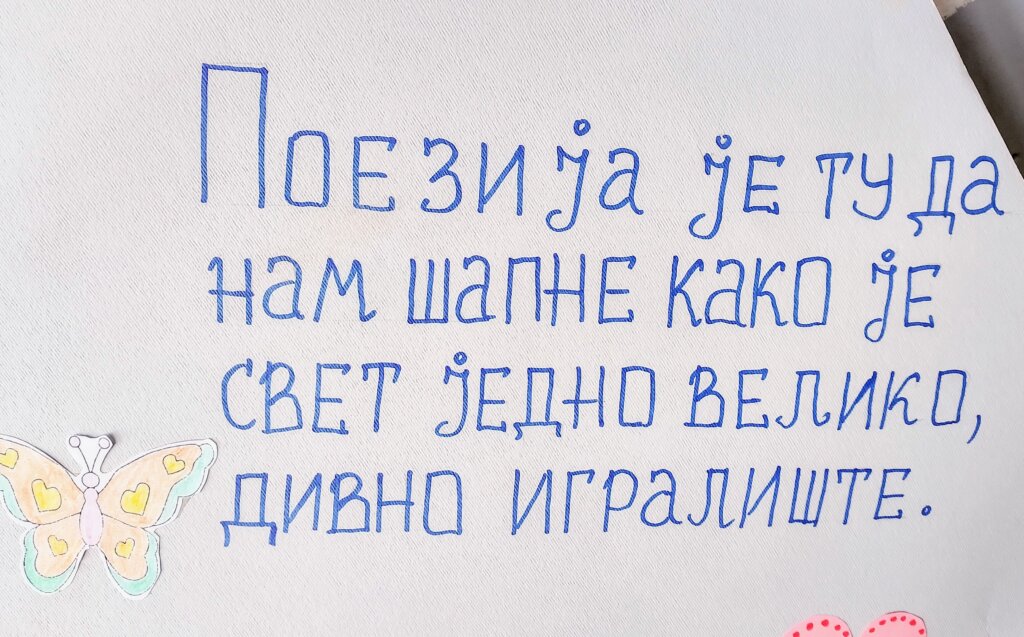 Поезија је ту да
нам шапне како је
свет једно велико,
дивно игралиште.